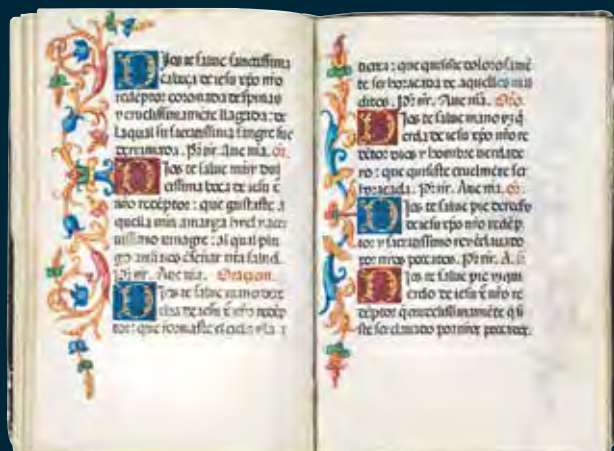 Dios te salue sanctissima
cabeça de iesu xpo nro
redeptor: coronada de spinas
y cruelissimamete llagada: de
la qual su sacratissima sangre fue
derramada. Pr nr. Aue ma. Or.
Dios te salue muy dul
cissima boca de iesu
nro redeptor: que gustaste a
quella muy amarga hiel y
vinagre: al qual
mi salud.
Pr nr. Aue ma. Oracion.
Dios te salue mano
de iesu nro redep
tor: que formaste el cielo
tierra: que quisiste
te ser horacada de aquellos mal
ditos. Pr nr. Aue ma. Oro.
Dios te salue mano yzq
erda de iesu xpo nro re
detor: dios y hombre verdade
ro: que quisiste cruelmete ser
horacada. Pr nr. Aue ma. or:
Dios te salue pie derecho
de iesu xpo nro redep
tor y sacratissimo rey
por nros peccados. Pr nr. A.
Dios te salue pie yzqui
erdo de iesu nro re
deptor q cruelissimamete q si
ste ser clauado por nros peccados.